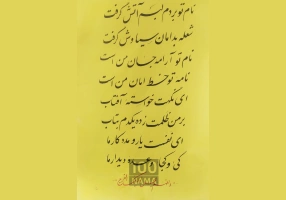 نام تو بردم لبم آتش گرفت
شعله بدامان سیاوش گرفت
نام تو آرامه جان من است
نامه تو خط امان من است
ای نگهت خواسته آفتاب
برمن ظلمت زده یکدم بتاب
ای نفست یار و مددکار ما
کی و کجا وعده دیدار ما
100
NAMA